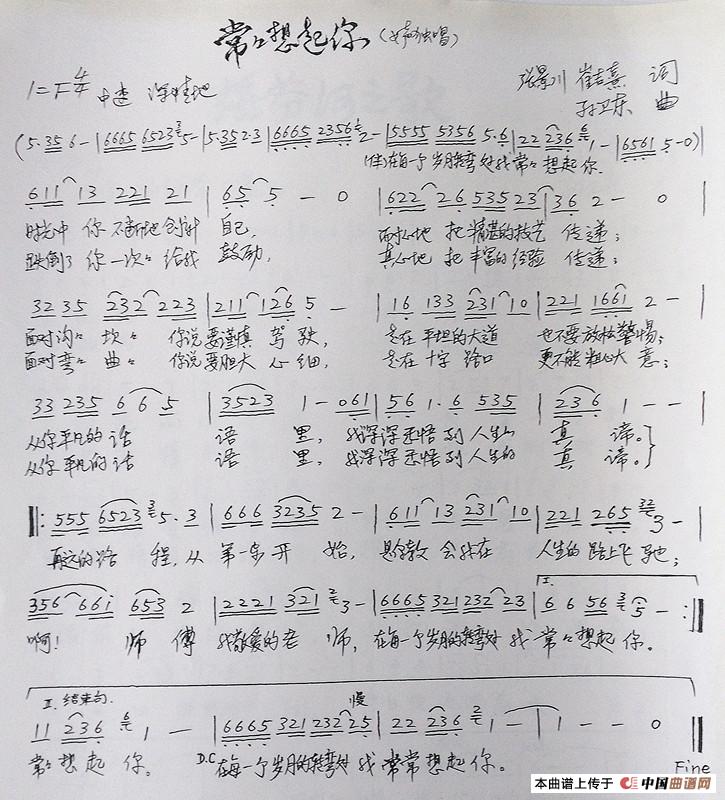 常常想起你（女声独唱）
1=F 4/4 中速 深情地
张景川 崔吉熹 词
孙卫东 曲
(5·35 6-|6665 6523 5-|5·35 2·3|6665 2356 2-|5555 5356 5·6|22 236 1-|6561 5-0)|
(伴)在每一个岁月转弯处我常常想起你。
611 13 221 21|65 5 - 0|622 26 535 23|36 2 - 0|
时光中 你 不断地创新 自己， 耐心地 把 精湛的技艺 传递；
跌倒了 你 一次次 给我 鼓励， 真心地 把 丰富的经验 传递；
32 35 232 223|211 126 5 -|16 133 231 10|221 1661 2 -|
面对沟沟 坎坎 你说要谨慎 驾驶， 走在 平坦的大道 也不要放松警惕；
面对弯弯 曲曲 你说要胆大 心细， 走在 十字 路口 更不能粗心大意；
33 235 6 6 5|3523 1 - 061|56 1·6 535|236 1 - -|
从你平凡的 话 语 里， 我深深悉悟到人生的 真 谛。
从你平凡的 话 语 里， 我深深悉悟到人生的 真 谛。
555 6523 5·3|666 3235 2 -|611 13 231 10|221 265 3 -|
再远的路 程，从 第一步 开 始， 是您教 会我在 人生的路上飞驰；
356 661 653 2|2221 321 3 -|6665 321 232 23|6 6 56 5 -:|
啊！ 师 傅 我敬爱的老 师，在每一个岁月的转弯处 我 常常想起你。
II. 结束句. 慢
11 236 1 -|6665 321 232 25|22 236 1 -|1 - - 0|
常常想起 你。 D.C 在每一个岁月的转弯处 我 常常想起 你。
Fine
本曲谱上传于 中国曲谱网